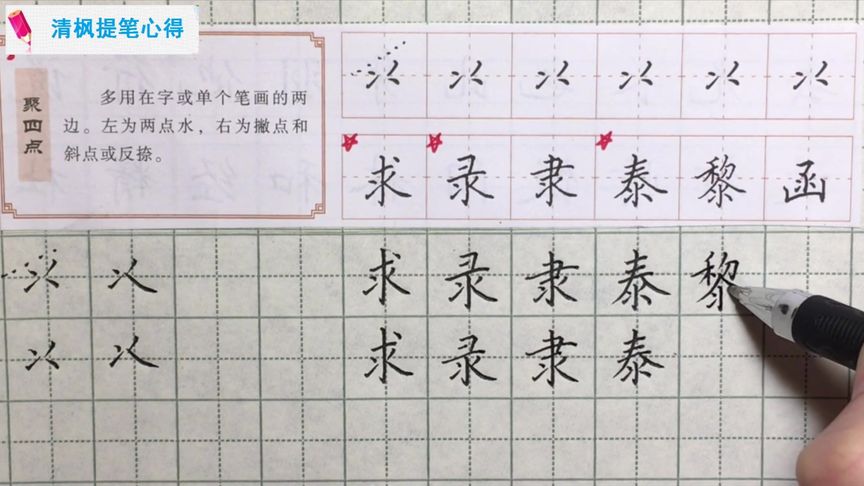 清枫提笔心得
聚四点
多用在字或单个笔画的两
边。左为两点水，右为撇点和
斜点或反捺。
求 录 隶 泰 黎 函
求 录 隶 泰 黎
求 录 隶 泰